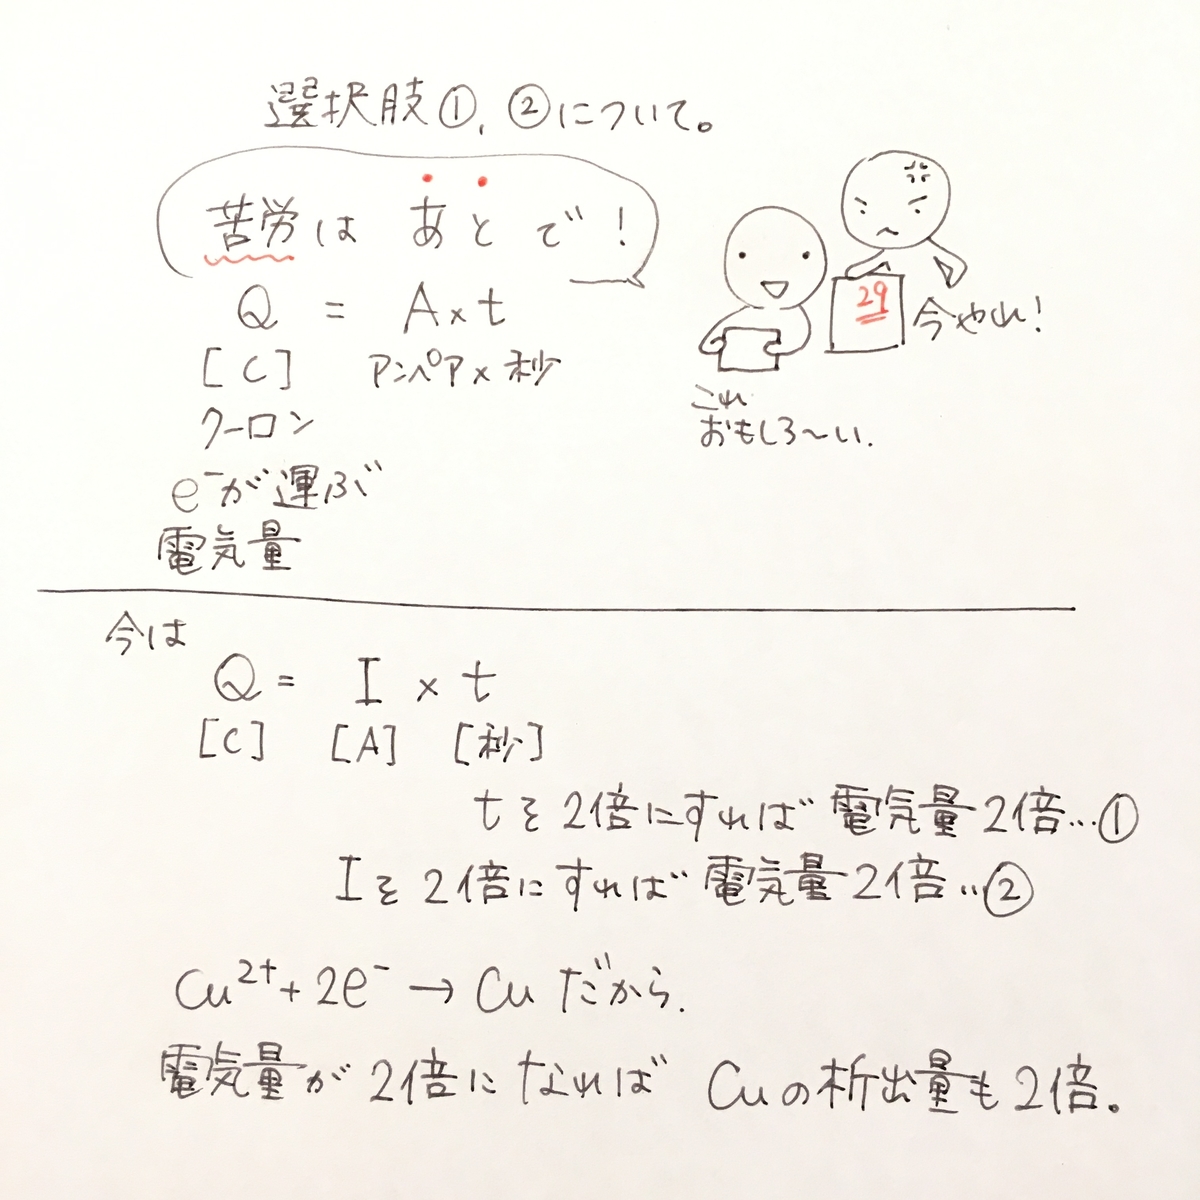 選択肢①,②について。
苦労は あとで!
Q = A×t
[C] アンペア×秒
クーロン
e⁻が運ぶ
電気量
29
今やれ!
これ
おもしろ〜い.
今は
Q = I × t
[C] [A] [秒]
tを2倍にすれば電気量2倍…①
Iを2倍にすれば電気量2倍…②
Cu²⁺+2e⁻→Cuだから.
電気量が2倍になればCuの析出量も2倍。